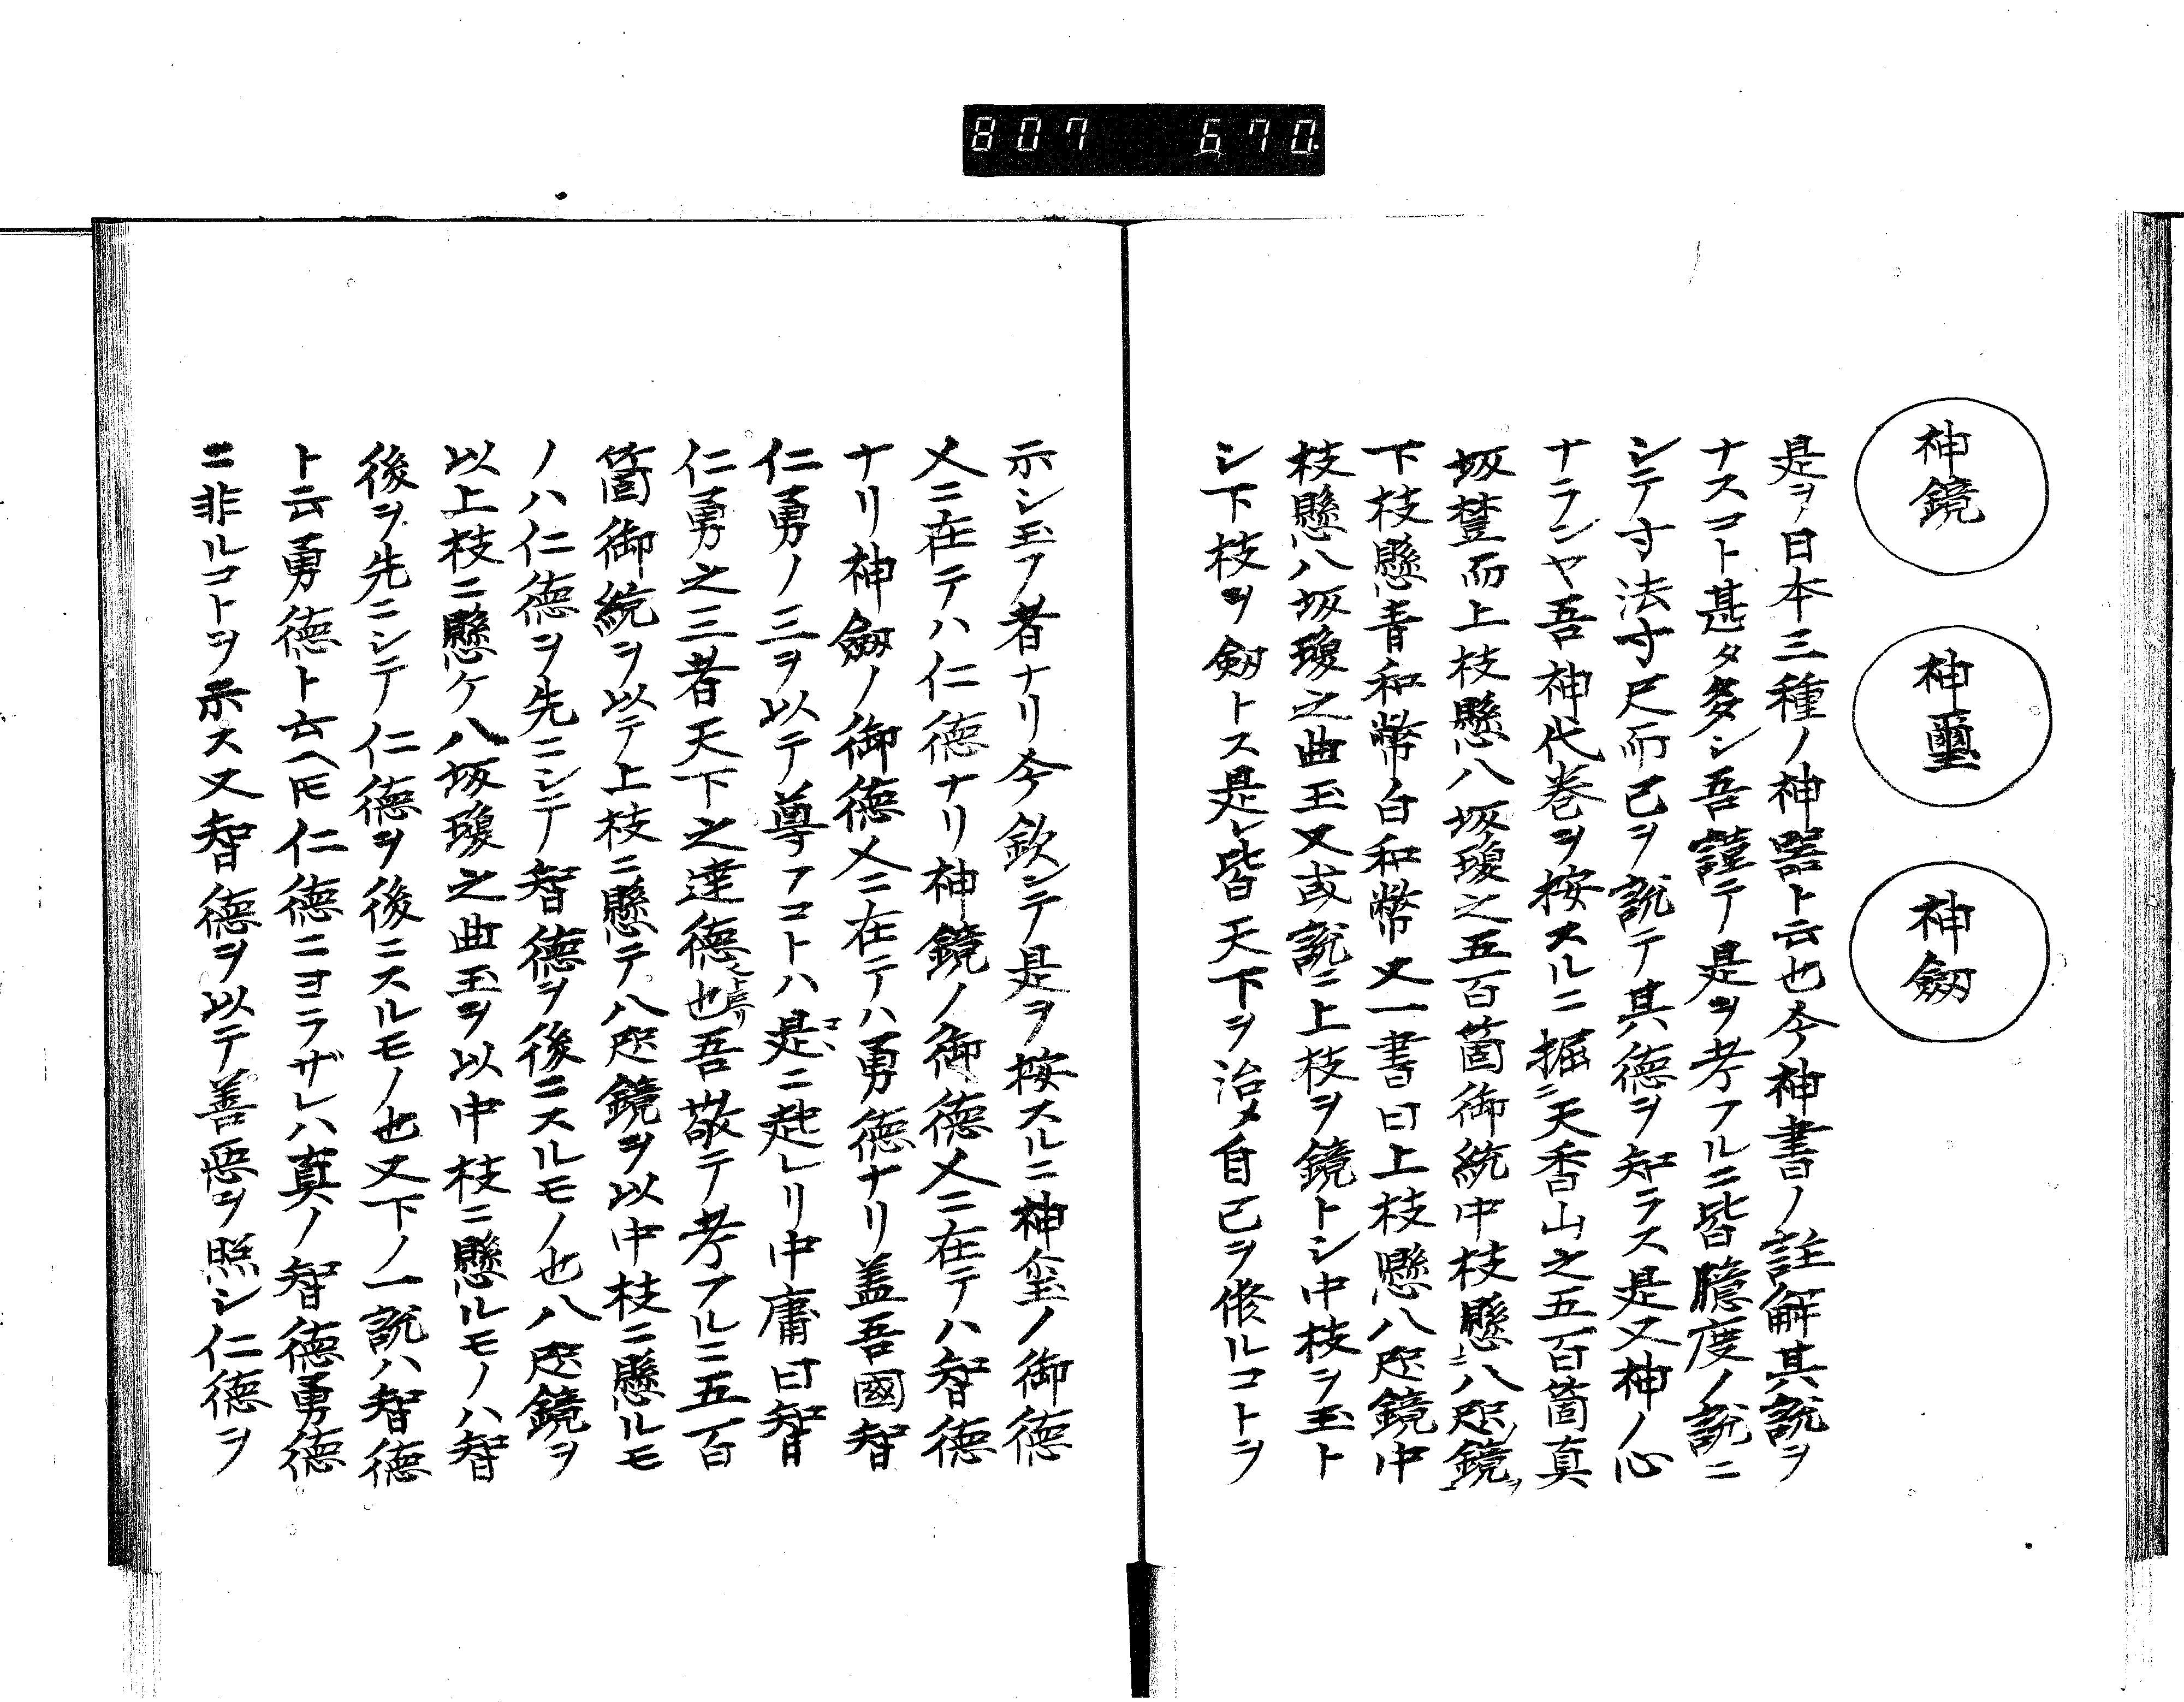 807 670
神鏡
神璽
神劔
是ヲ日本三種ノ神器ト云也今神書ノ註解其説ヲ
ナスコト甚タ多シ吾謹テ是ヲ考フルニ皆臆度ノ説ニ
シテ寸法寸尺而已ヲ説テ其徳ヲ知ラス是又神ノ心
ナランヤ吾神代巻ヲ按スルニ掘ニ天香山之五百箇真
坂䔲而上枝懸八坂瓊之五百箇御統中枝懸ニ八咫鏡ヲ
下枝懸青和幣白和幣又一書曰上枝懸八咫鏡中
枝懸八坂瓊之曲玉又或説ニ上枝ヲ鏡トシ中枝ヲ玉ト
シ下枝ヲ劔トス是レ皆天下ヲ治メ自己ヲ脩ルコトヲ
示シ玉フ者ナリ今欽ンテ是ヲ按スルニ神璽ノ御徳
乂ニ在テハ仁徳ナリ神鏡ノ御徳乂ニ在テハ智徳
ナリ神劔ノ御徳乂ニ在テハ勇徳ナリ蓋吾國智
仁勇ノ三ヲ以テ尊フコトハ是ニ起レリ中庸曰智
仁勇之三者天下之達徳也吾敬テ考フルニ五百
箇御統ヲ以テ上枝ニ懸テ八咫鏡ヲ以中枝ニ懸ルモ
ノハ仁徳ヲ先ニシテ智徳ヲ後ニスルモノ也八咫鏡ヲ
以上枝ニ懸ケ八坂瓊之曲玉ヲ以中枝ニ懸ルモノハ智
後ヲ先ニシテ仁徳ヲ後ニスルモノ也又下ノ一説ハ智徳
ト云勇徳ト云ヘ𪜈仁徳ニヨラザレハ真ノ智徳勇徳
ニ非ルコトヲ示ス又智徳ヲ以テ善惡ヲ照シ仁徳ヲ